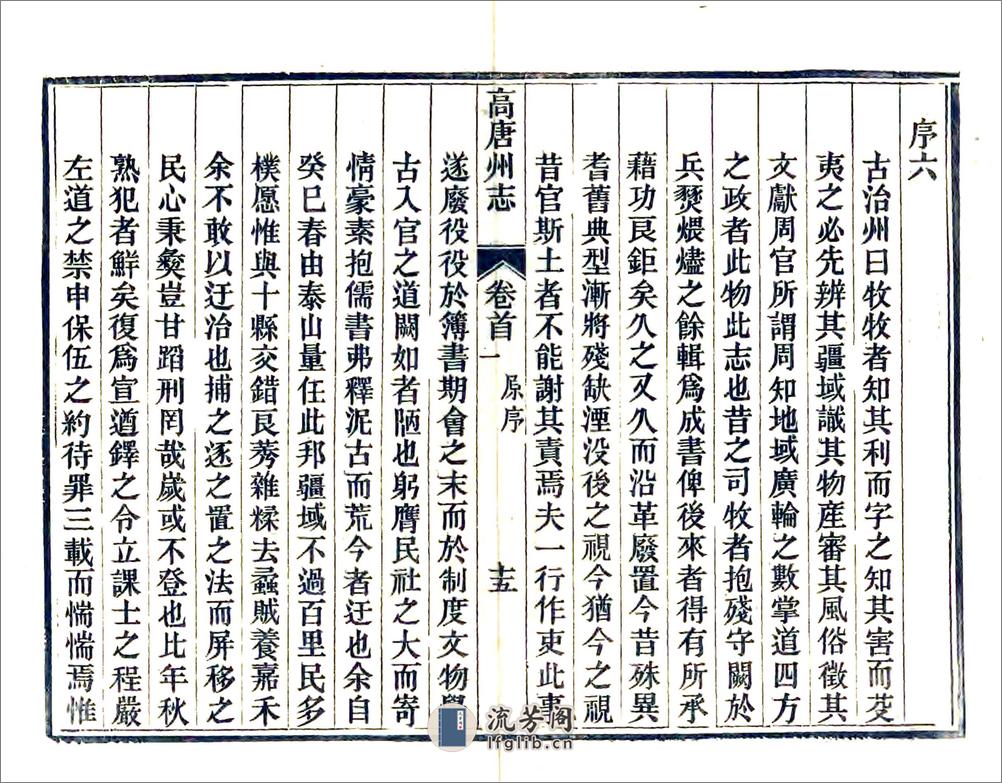 序六
古治州曰牧牧者知其利而字之知其害而芟
夷之必先辨其疆域識其物産審其風俗徵其
文獻周官所謂周知地域廣輪之數掌道四方
之政者此物此志也昔之司牧者抱殘守闕於
兵燹煨燼之餘輯爲成書俾後來者得有所承
藉功良鉅矣久之又久而沿革廢置今昔殊異
耆舊典型漸將殘缺湮没後之視今猶今之視
昔官斯土者不能謝其責焉夫一行作吏此事
高唐州志
卷首一
原序
十五
遂廢役役於簿書期會之末而於制度文物學
古入官之道闕如者陋也躬膺民社之大而寄
情豪素抱儒書弗釋泥古而荒今者迂也余自
癸巳春由泰山量任此邦疆域不過百里民多
樸愿惟與十縣交錯良莠雜糅去蟊賊養嘉禾
余不敢以迂治也捕之逐之置之法而屏移之
民心秉彝豈甘蹈刑罔哉歲或不登也比年秋
熟犯者鮮矣復爲宣遒鐸之令立課士之程嚴
左道之禁申保伍之約待罪三載而惴惴焉惟
流芳阁
lfglib.cn